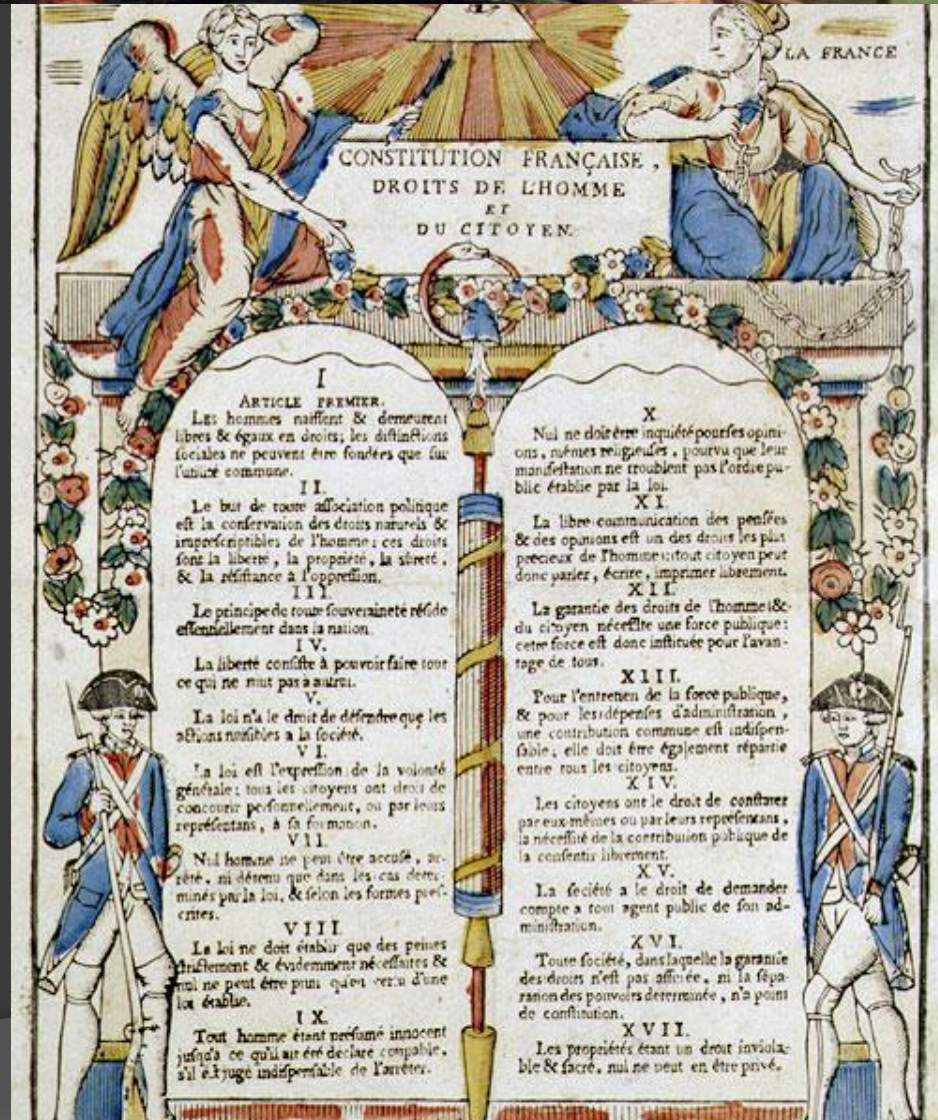 LA FRANCE
CONSTITUTION FRANÇAISE,
DROITS DE L'HOMME
ET
DU CITOYEN.
I
ARTICLE PREMIER.
LES hommes naiſſent & demeurent
libres & égaux en droits; les diſtinctions
ſociales ne peuvent être fondées que ſur
l'utilité commune.
II.
Le but de toute aſſociation politique
eſt la conſervation des droits naturels &
impreſcriptibles de l'homme; ces droits
ſont la liberté, la propriété, la sûreté,
& la réſiſtance à l'oppreſſion.
III.
Le principe de toute ſouveraineté réſide
eſſentiellement dans la nation.
IV.
La liberté conſiſte à pouvoir faire tout
ce qui ne nuit pas à autrui.
V.
La loi n'a le droit de défendre que les
actions nuiſibles a la ſociété.
VI.
La loi eſt l'expreſſion de la volonté
générale; tous les citoyens ont droit de
concourir perſonnellement, ou par leurs
repréſentans, à ſa formation.
VII.
Nul homme ne peut être accuſé, ar-
rêté, ni détenu que dans les cas déter-
minés par la loi, & ſelon les formes preſ-
crites.
VIII.
La loi ne doit établir que des peines
ſtrictement & évidemment néceſſaires &
nul ne peut être puni qu'en vertu d'une
loi établie.
IX.
Tout homme étant préſumé innocent
juſqu'a ce qu'il ait été déclaré coupable,
s'il eſt jugé indiſpenſable de l'arrêter.
X.
Nul ne doit être inquiété pour ſes opini-
ons, mêmes religieuſes, pourvu que leur
manifeſtation ne troublent pas l'ordre pu-
blic établie par la loi.
XI.
La libre communication des penſées
& des opinions eſt un des droits les plus
précieux de l'homme; tout citoyen peut
donc parler, écrire, imprimer librement.
XII.
La garantie des droits de l'homme &
du citoyen néceſſite une force publique;
cette force eſt donc inſtituée pour l'avan-
tage de tous.
XIII.
Pour l'entretien de la force publique,
& pour les dépenſes d'adminiſtration,
une contribution commune eſt indiſpen-
ſable; elle doit être également répartie
entre tous les citoyens.
XIV.
Les citoyens ont le droit de conſtater
par eux-mêmes ou par leurs repréſentans,
la néceſſité de la contribution publique de
la conſentir librement.
XV.
La ſociété a le droit de demander
compte a tout agent public de ſon ad-
miniſtration.
XVI.
Toute ſociété, dans laquelle la garantie
des droits n'eſt pas aſſurée, ni la ſépa-
ration des pouvoirs déterminée, n'a point
de conſtitution.
XVII.
Les propriétés étant un droit inviola-
ble & ſacré, nul ne peut en être privé.